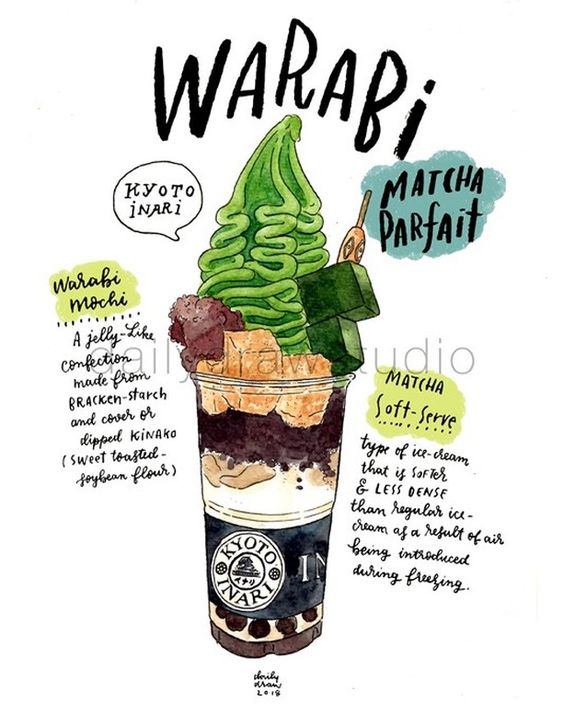 WARABi
KYOTO
iNARi
MATCHA
PARfAit
Warabi
mochi
A jelly-like
confection
made from
BRACKEN-STARCH
and cover or
dipped KiNAKO
(SWEET toasted-
soybean flour)
dailydrawstudio
MATCHA
Soft-Serve
type of ice-cream
that is SOFTER
& LESS DENSE
than regular ice-
cream as a result of air
being introduced
during freezing.
KYOTO
イナリ
INARI
IN
daily
draw
2018